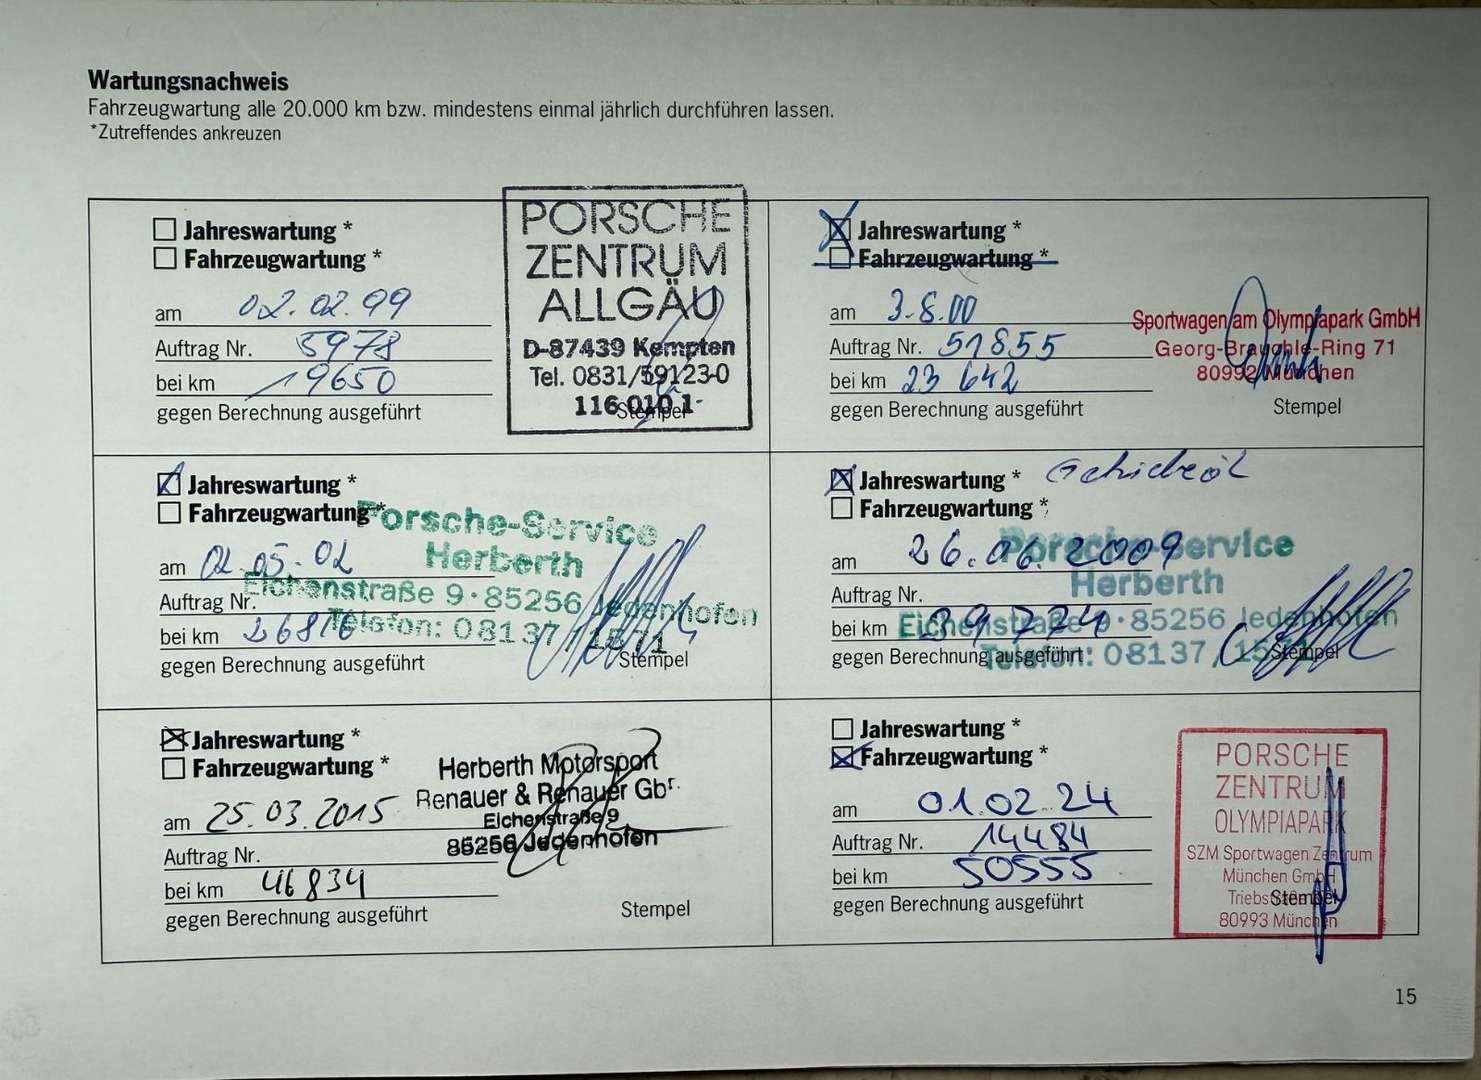 Wartungsnachweis
Fahrzeugwartung alle 20.000 km bzw. mindestens einmal jährlich durchführen lassen.
*Zutreffendes ankreuzen
Jahreswartung *
Fahrzeugwartung *
am 02.02.99
Auftrag Nr. 5978
bei km 19650
gegen Berechnung ausgeführt
PORSCHE
ZENTRUM
ALLGÄU
D-87439 Kempten
Tel. 0831/59123-0
116 010 1
Stempel
Jahreswartung *
Fahrzeugwartung *
am 3.8.00
Auftrag Nr. 51855
bei km 23 642
gegen Berechnung ausgeführt
Sportwagen am Olympiapark GmbH
Georg-Brauchle-Ring 71
80992 München
Stempel
Jahreswartung *
Fahrzeugwartung *
am 02.05.02
Auftrag Nr.
bei km 26816
gegen Berechnung ausgeführt
Porsche-Service
Herberth
Eichenstraße 9 · 85256 Jedenhofen
Telefon: 08137 / 1571
Stempel
Jahreswartung *
Fahrzeugwartung *
am 26.06.2009
Auftrag Nr.
bei km 39774
gegen Berechnung ausgeführt
Porsche-Service
Herberth
Eichenstraße 9 · 85256 Jedenhofen
Telefon: 08137 / 1571
Stempel
Jahreswartung *
Fahrzeugwartung *
am 25.03.2015
Auftrag Nr.
bei km 46834
gegen Berechnung ausgeführt
Herberth Motorsport
Renauer & Renauer Gbr.
Eichenstraße 9
85256 Jedenhofen
Stempel
Jahreswartung *
Fahrzeugwartung *
am 01.02.24
Auftrag Nr. 14484
bei km 50555
gegen Berechnung ausgeführt
PORSCHE
ZENTRUM
OLYMPIAPARK
SZM Sportwagen Zentrum
München GmbH
80993 München
Stempel
15